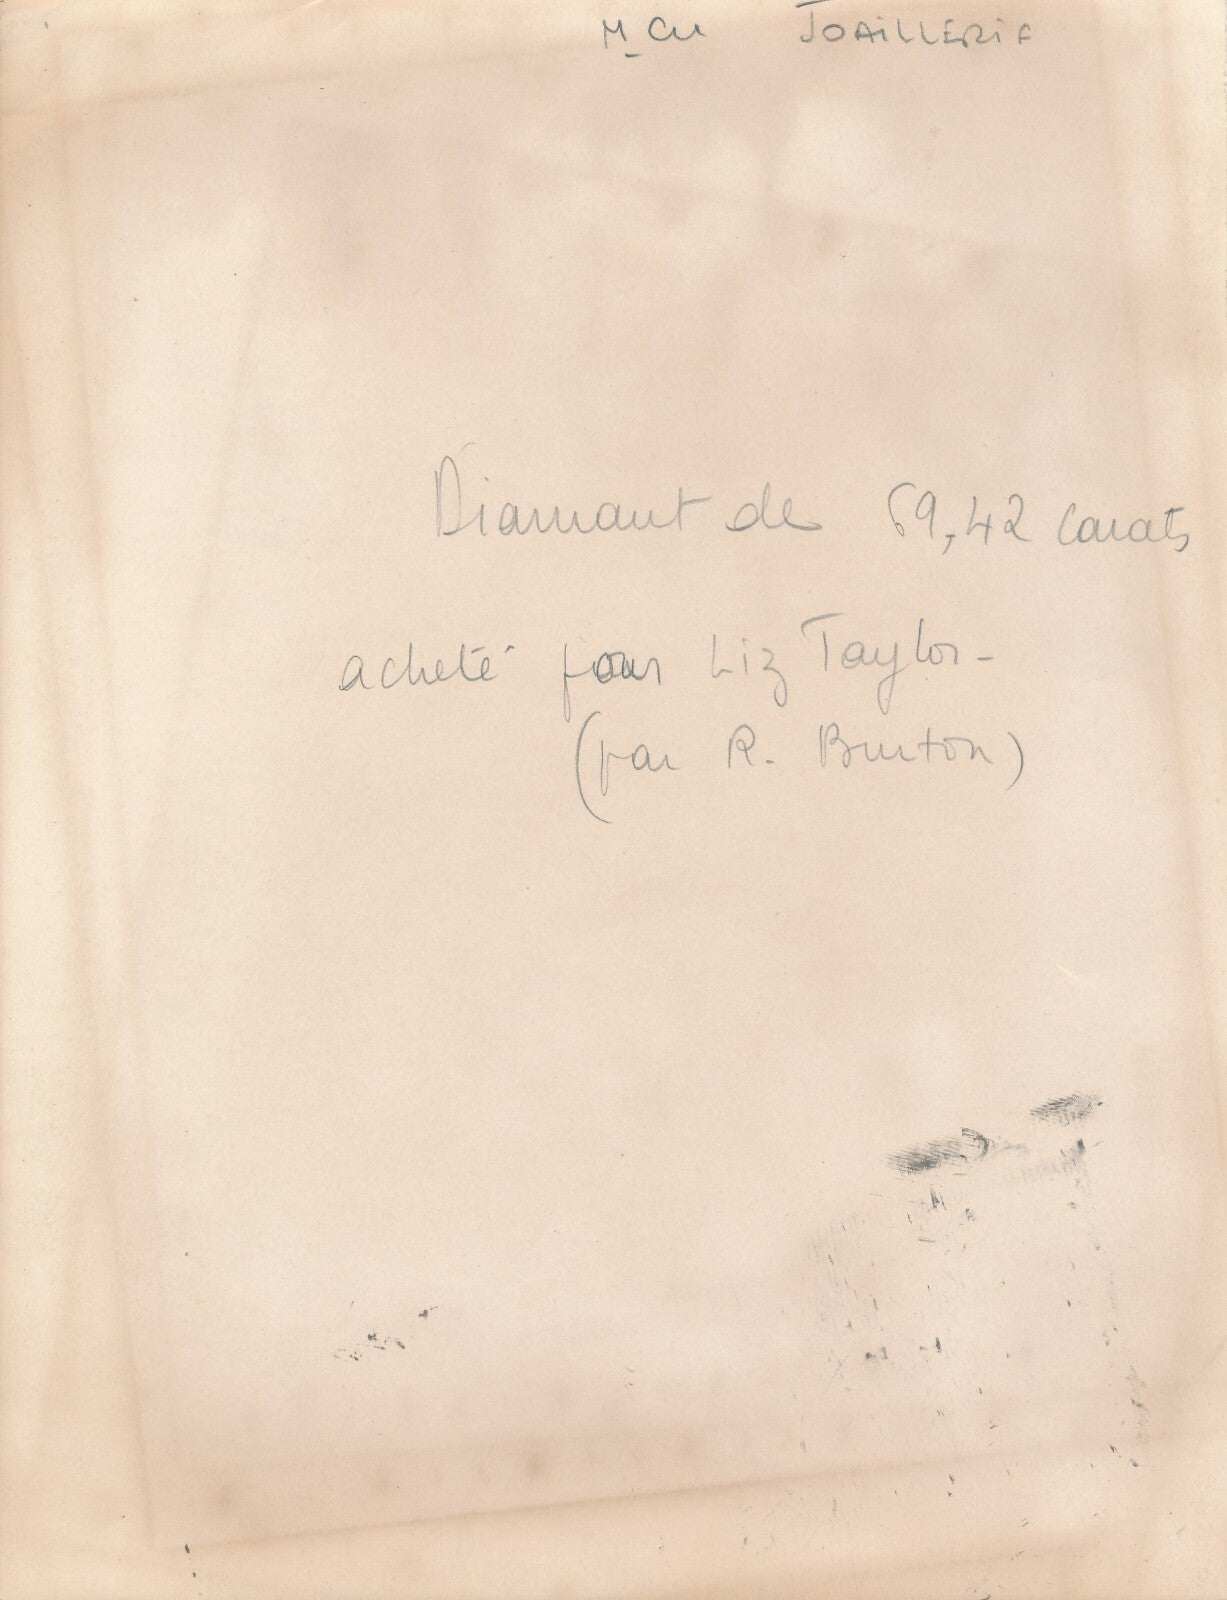 JOAILLERIE
Diamant de 69,42 carats
acheté pour Liz Taylor-
(par R. Burton)